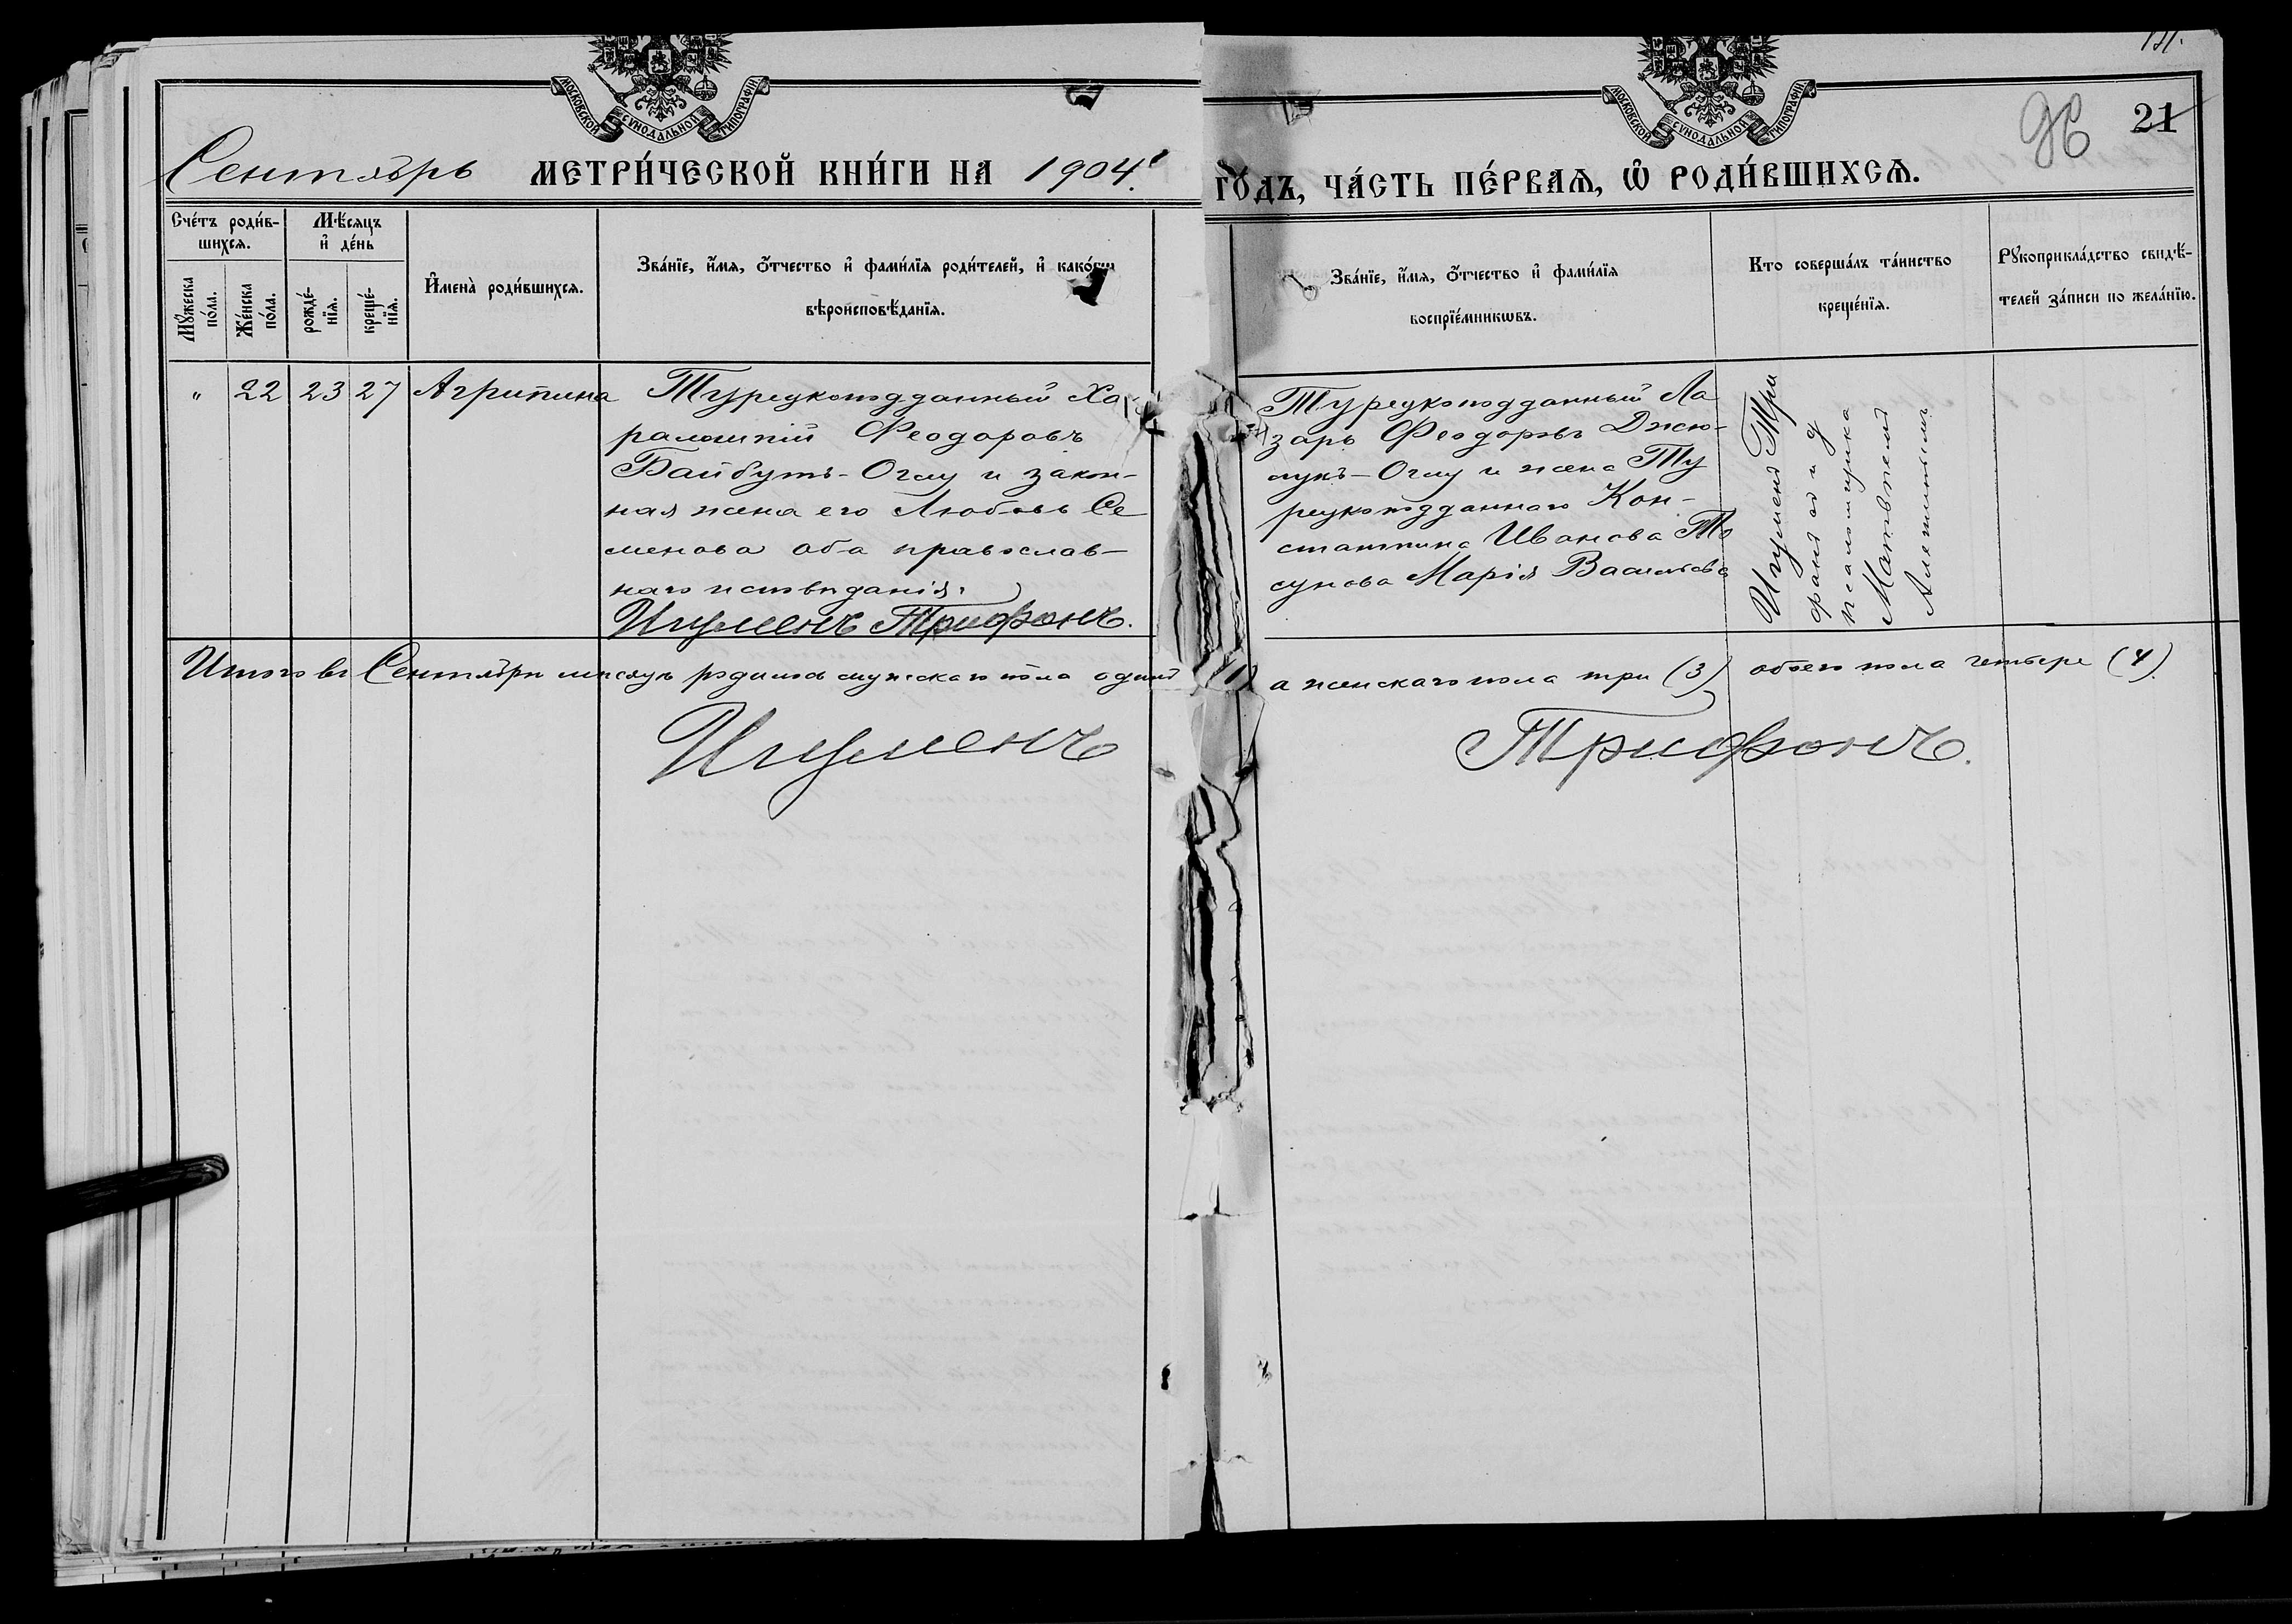 МОСКОВСКОЙ СѴНОДАЛЬНОЙ ТИПОГРАФІИ
МОСКОВСКОЙ СѴНОДАЛЬНОЙ ТИПОГРАФІИ
21
Сентябрь МЕТРИ́ЧЕСКОЙ КНИ́ГИ НА 1904.
ГО́ДЪ, ЧА́СТЬ ПЕ́РВАЯ, Ѡ РОДИ́ВШИХСЯ.
Сче́тъ роди́в-
шихся.
Мѣ́сяцъ
и де́нь
Му́жеска
по́ла.
Же́нска
по́ла.
рожде́-
нїя.
креще́-
нїя.
И҆мена̀ роди́вшихся.
Зва́нїе, и҆́мя, ѻ҆́тчество и҆ фами́лїя роди́телей, и҆ како́гѡ
вѣроисповѣ́данїя.
Зва́нїе, и҆́мя, ѻ҆́тчество и҆ фами́лїя
воспрїе́мникѡвъ.
Кто соверша́лъ та́инство
креще́нїя.
Рꙋкоприкла́дство свидѣ́-
телей за́писи по жела́нїю.
" 22 23 27 Агрипина
Турецкоподданный Ха
ралампій Феодоровъ
Байбутъ-Оглу и закон-
ная жена его Любовь Се
менова оба православ-
наго исповѣданія.
Игуменъ Трифонъ.
Турецкоподданный Ла
зарь Феодоровъ Дже-
лукъ-Оглу и жена Ту
рецкоподданного Кон-
стантина Иванова То
сунова Марія Васильева
Игуменъ Три
фонъ и д
псаломщика
Матвѣй
Итого въ Сентябрѣ мѣсяцѣ родилось мужскаго пола одинъ (1) а женскаго пола три (3) обоего пола четыре (4).
Игуменъ Трифонъ.